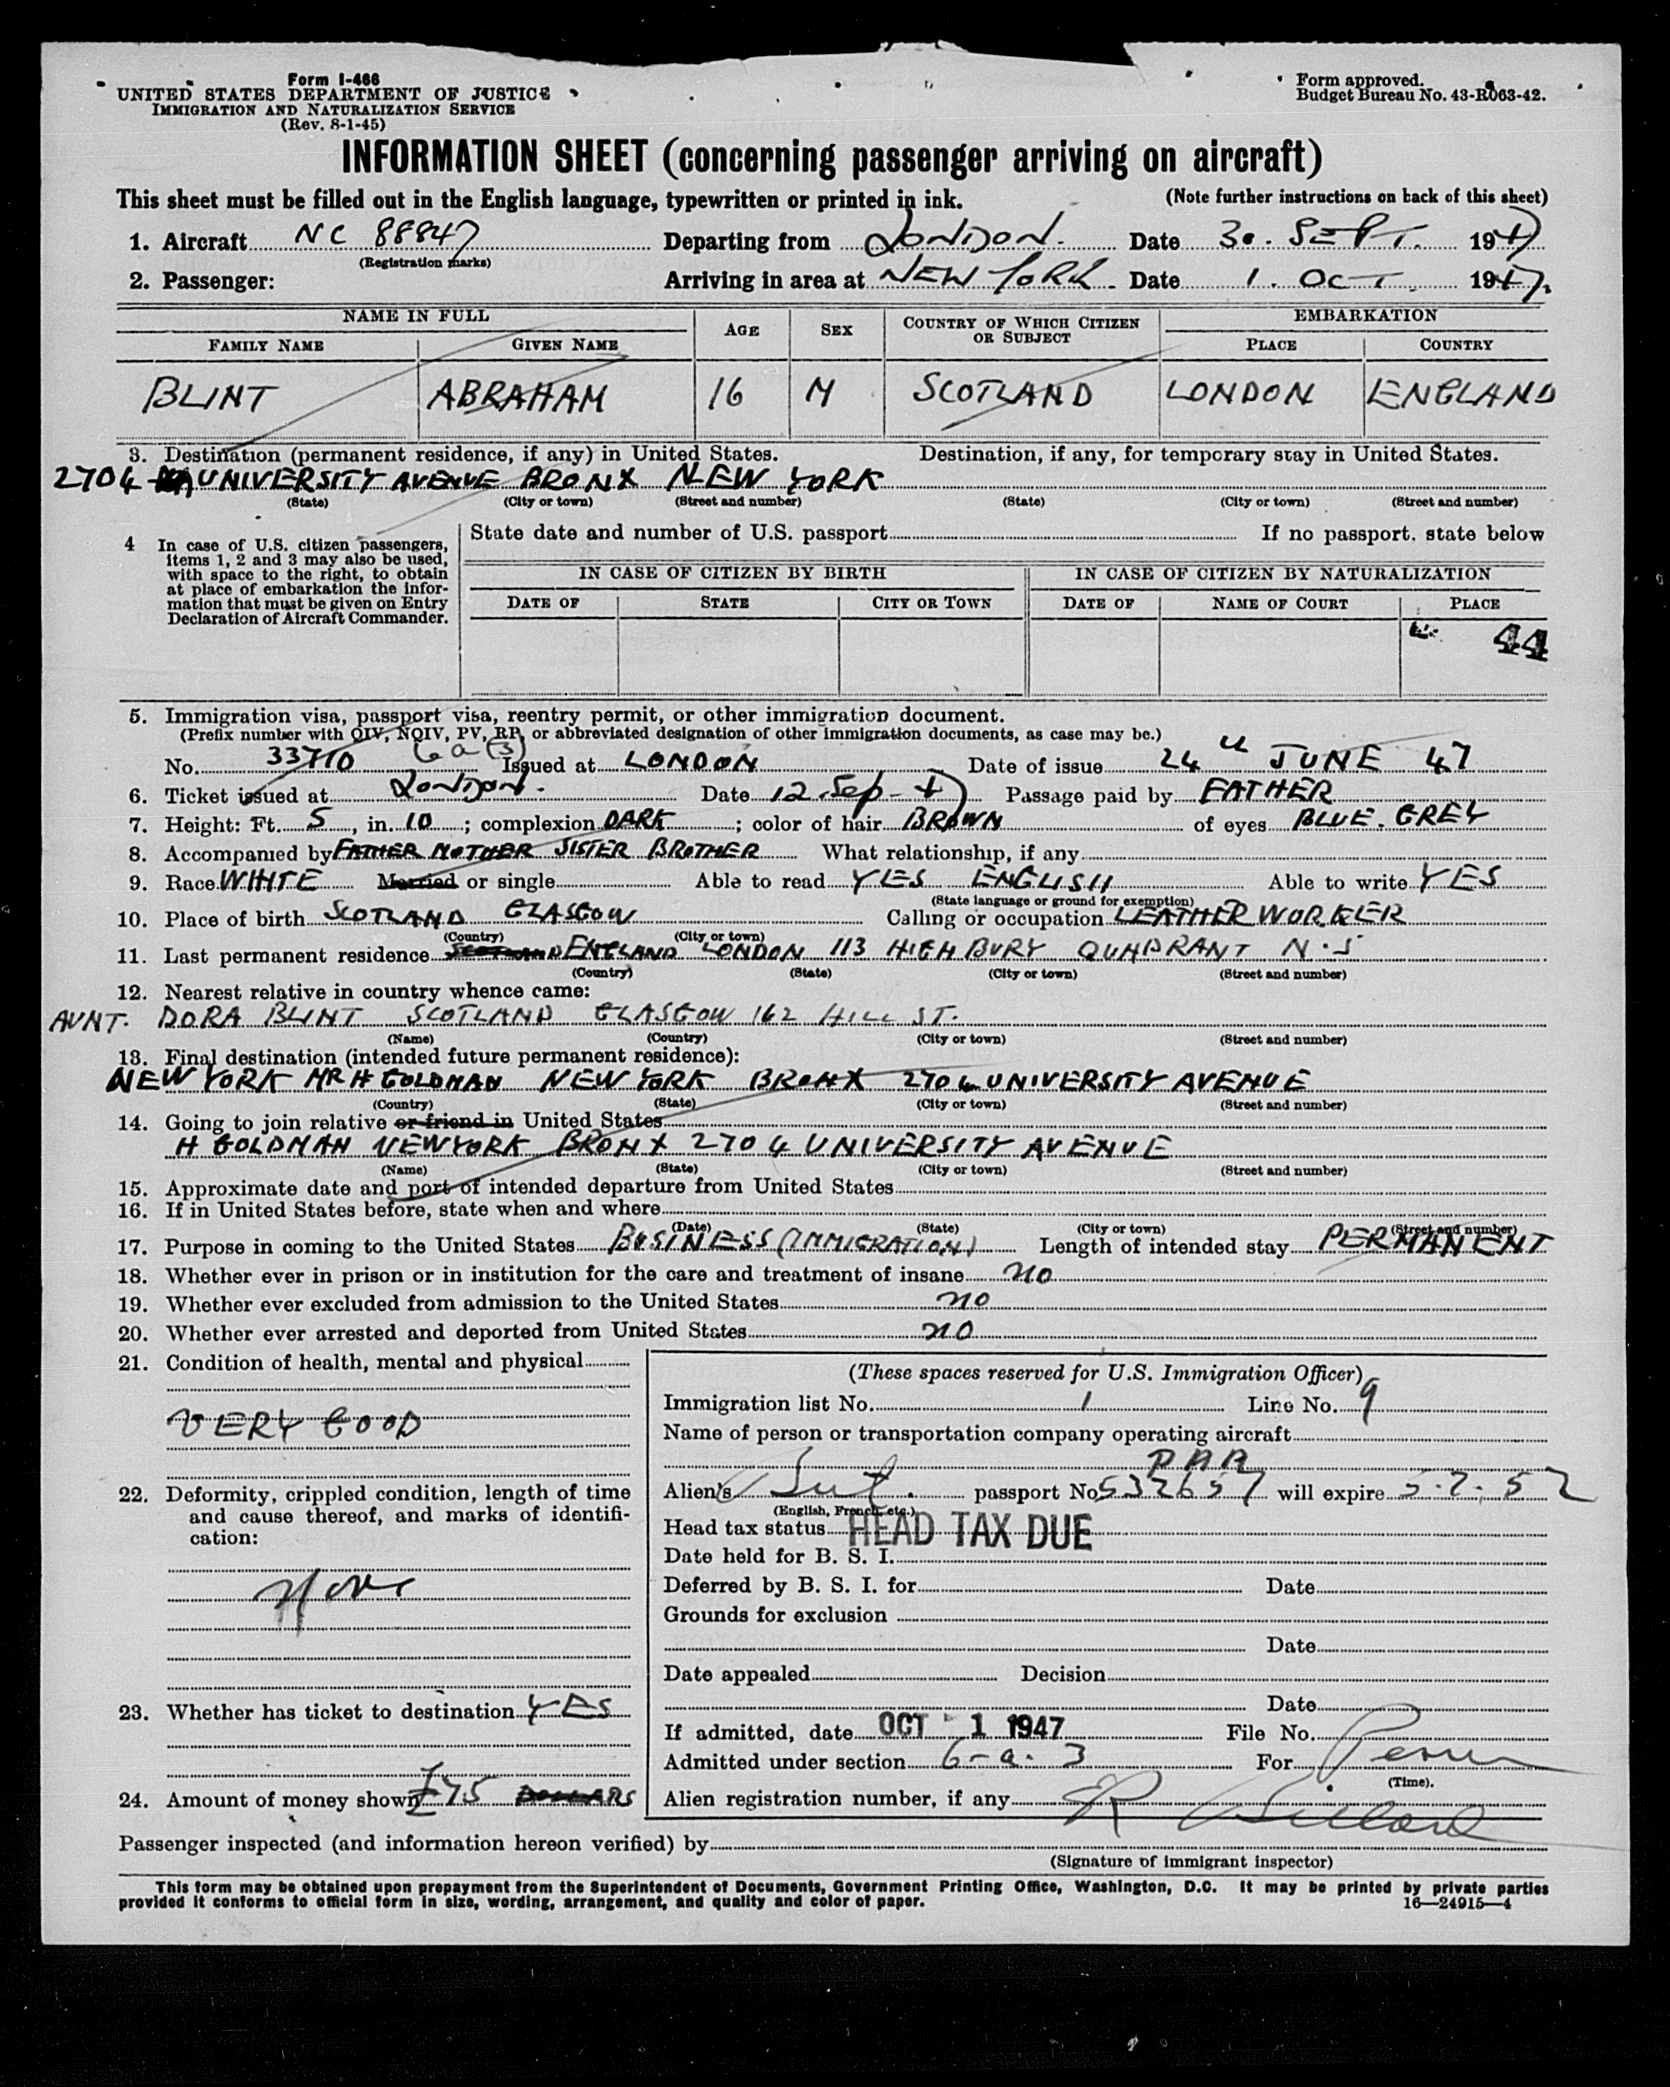 Form I-466
UNITED STATES DEPARTMENT OF JUSTICE
IMMIGRATION AND NATURALIZATION SERVICE
(Rev. 8-1-45)
Form approved.
Budget Bureau No. 43-R063-42.
INFORMATION SHEET (concerning passenger arriving on aircraft)
This sheet must be filled out in the English language, typewritten or printed in ink. (Note further instructions on back of this sheet)
1. Aircraft NC 88847 Departing from LONDON. Date 30. SEPT. 1947
(Registration marks)
2. Passenger: Arriving in area at NEW YORK. Date 1. OCT. 1947.
NAME IN FULL AGE SEX COUNTRY OF WHICH CITIZEN OR SUBJECT EMBARKATION
FAMILY NAME GIVEN NAME PLACE COUNTRY
BLINT ABRAHAM 16 M SCOTLAND LONDON ENGLAND
3. Destination (permanent residence, if any) in United States. Destination, if any, for temporary stay in United States.
2704 UNIVERSITY AVENUE BRONX NEW YORK
(State) (City or town) (Street and number) (State) (City or town) (Street and number)
4 In case of U.S. citizen passengers, items 1, 2 and 3 may also be used, with space to the right, to obtain at place of embarkation the information that must be given on Entry Declaration of Aircraft Commander.
State date and number of U.S. passport If no passport, state below
IN CASE OF CITIZEN BY BIRTH IN CASE OF CITIZEN BY NATURALIZATION
DATE OF STATE CITY OR TOWN DATE OF NAME OF COURT PLACE
44
5. Immigration visa, passport visa, reentry permit, or other immigration document.
(Prefix number with QIV, NQIV, PV, RP, or abbreviated designation of other immigration documents, as case may be.)
No. 33710 6a(3) Issued at LONDON Date of issue 24 JUNE 47
6. Ticket issued at London. Date 12. Sep - 47 Passage paid by FATHER
7. Height: Ft. 5, in. 10; complexion DARK; color of hair BROWN of eyes BLUE. GREY
8. Accompanied by FATHER MOTHER SISTER BROTHER What relationship, if any
9. Race WHITE Married or single Able to read YES ENGLISH Able to write YES
(State language or ground for exemption)
10. Place of birth SCOTLAND GLASGOW Calling or occupation LEATHER WORKER
(Country) (City or town)
11. Last permanent residence ENGLAND LONDON 113 HIGHBURY QUADRANT N.5
(Country) (State) (City or town) (Street and number)
12. Nearest relative in country whence came:
AUNT. DORA BLINT SCOTLAND GLASGOW 162 HILL ST.
(Name) (Country) (City or town) (Street and number)
13. Final destination (intended future permanent residence):
NEW YORK MR H GOLDMAN NEW YORK BRONX 2704 UNIVERSITY AVENUE
(Country) (State) (City or town) (Street and number)
14. Going to join relative or friend in United States
H GOLDMAN NEW YORK BRONX 2704 UNIVERSITY AVENUE
(Name) (State) (City or town) (Street and number)
15. Approximate date and port of intended departure from United States
16. If in United States before, state when and where
(Date) (State) (City or town) (Street and number)
17. Purpose in coming to the United States BUSINESS (IMMIGRATION) Length of intended stay PERMANENT
18. Whether ever in prison or in institution for the care and treatment of insane no
19. Whether ever excluded from admission to the United States no
20. Whether ever arrested and deported from United States no
21. Condition of health, mental and physical
VERY GOOD
22. Deformity, crippled condition, length of time and cause thereof, and marks of identification:
None
23. Whether has ticket to destination YES
24. Amount of money shown £75 DOLLARS
(These spaces reserved for U.S. Immigration Officer)
Immigration list No. 1 Line No. 9
Name of person or transportation company operating aircraft
PAA
Alien's passport No. 532657 will expire 5.2.52
(English, French, etc.)
Head tax status HEAD TAX DUE
Date held for B. S. I.
Deferred by B. S. I. for Date
Grounds for exclusion
Date
Date appealed Decision
Date
If admitted, date OCT 1 1947 File No.
Admitted under section 6-a. 3 For Perm
(Time).
Alien registration number, if any
Passenger inspected (and information hereon verified) by
(Signature of immigrant inspector)
This form may be obtained upon prepayment from the Superintendent of Documents, Government Printing Office, Washington, D.C. It may be printed by private parties
provided it conforms to official form in size, wording, arrangement, and quality and color of paper. 16—24915—4